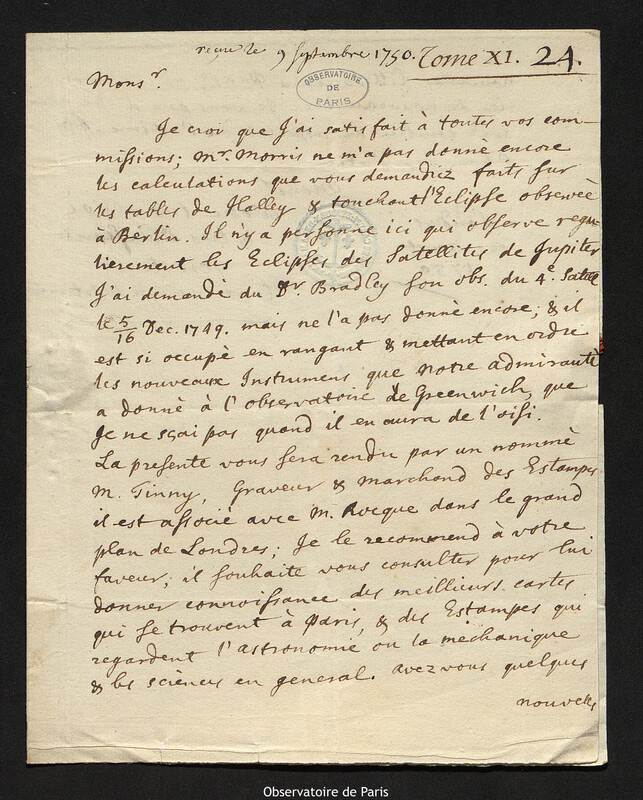 receu le 9 septembre 1750. Tome XI. 24.
OBSERVATOIRE DE PARIS
Monsr.
Je croi que J'ai satisfait à toutes vos com-
missions; Mr. Morris ne m'a pas donnè encore
les calculations que vous demandiez faits sur
les tables de Halley & touchant l'Eclipse observeè
à Berlin. Il n'y a personne ici qui observe regu-
lierement les Eclipses des Satellites de Jupiter
J'ai demandè du Dr. Bradley son obs. du 4e. Satell
le 5/16 Dec. 1749. mais ne l'a pas donnè encore; & il
est si occupè en rangant & mettant en ordre
les nouveaux Instrumens que notre admirautè
a donnè à l'observatoire de Greenwich, que
Je ne sçai pas quand il en aura de l'oisi.
La presente vous sera rendu par un nommè
M. Tinny, Graveur & marchand des Estampes
il est associè avec M. Rocque dans le grand
plan de Londres; Je le recommend à votre
faveur; il souhaite vous consulter pour lui
donner connoissance des meilleurs cartes
qui se trouvent à Paris, & des Estampes qui
regardent l'astronomie ou la mèchanique
& les sciences en general. avez vous quelques
nouvelles
Observatoire de Paris